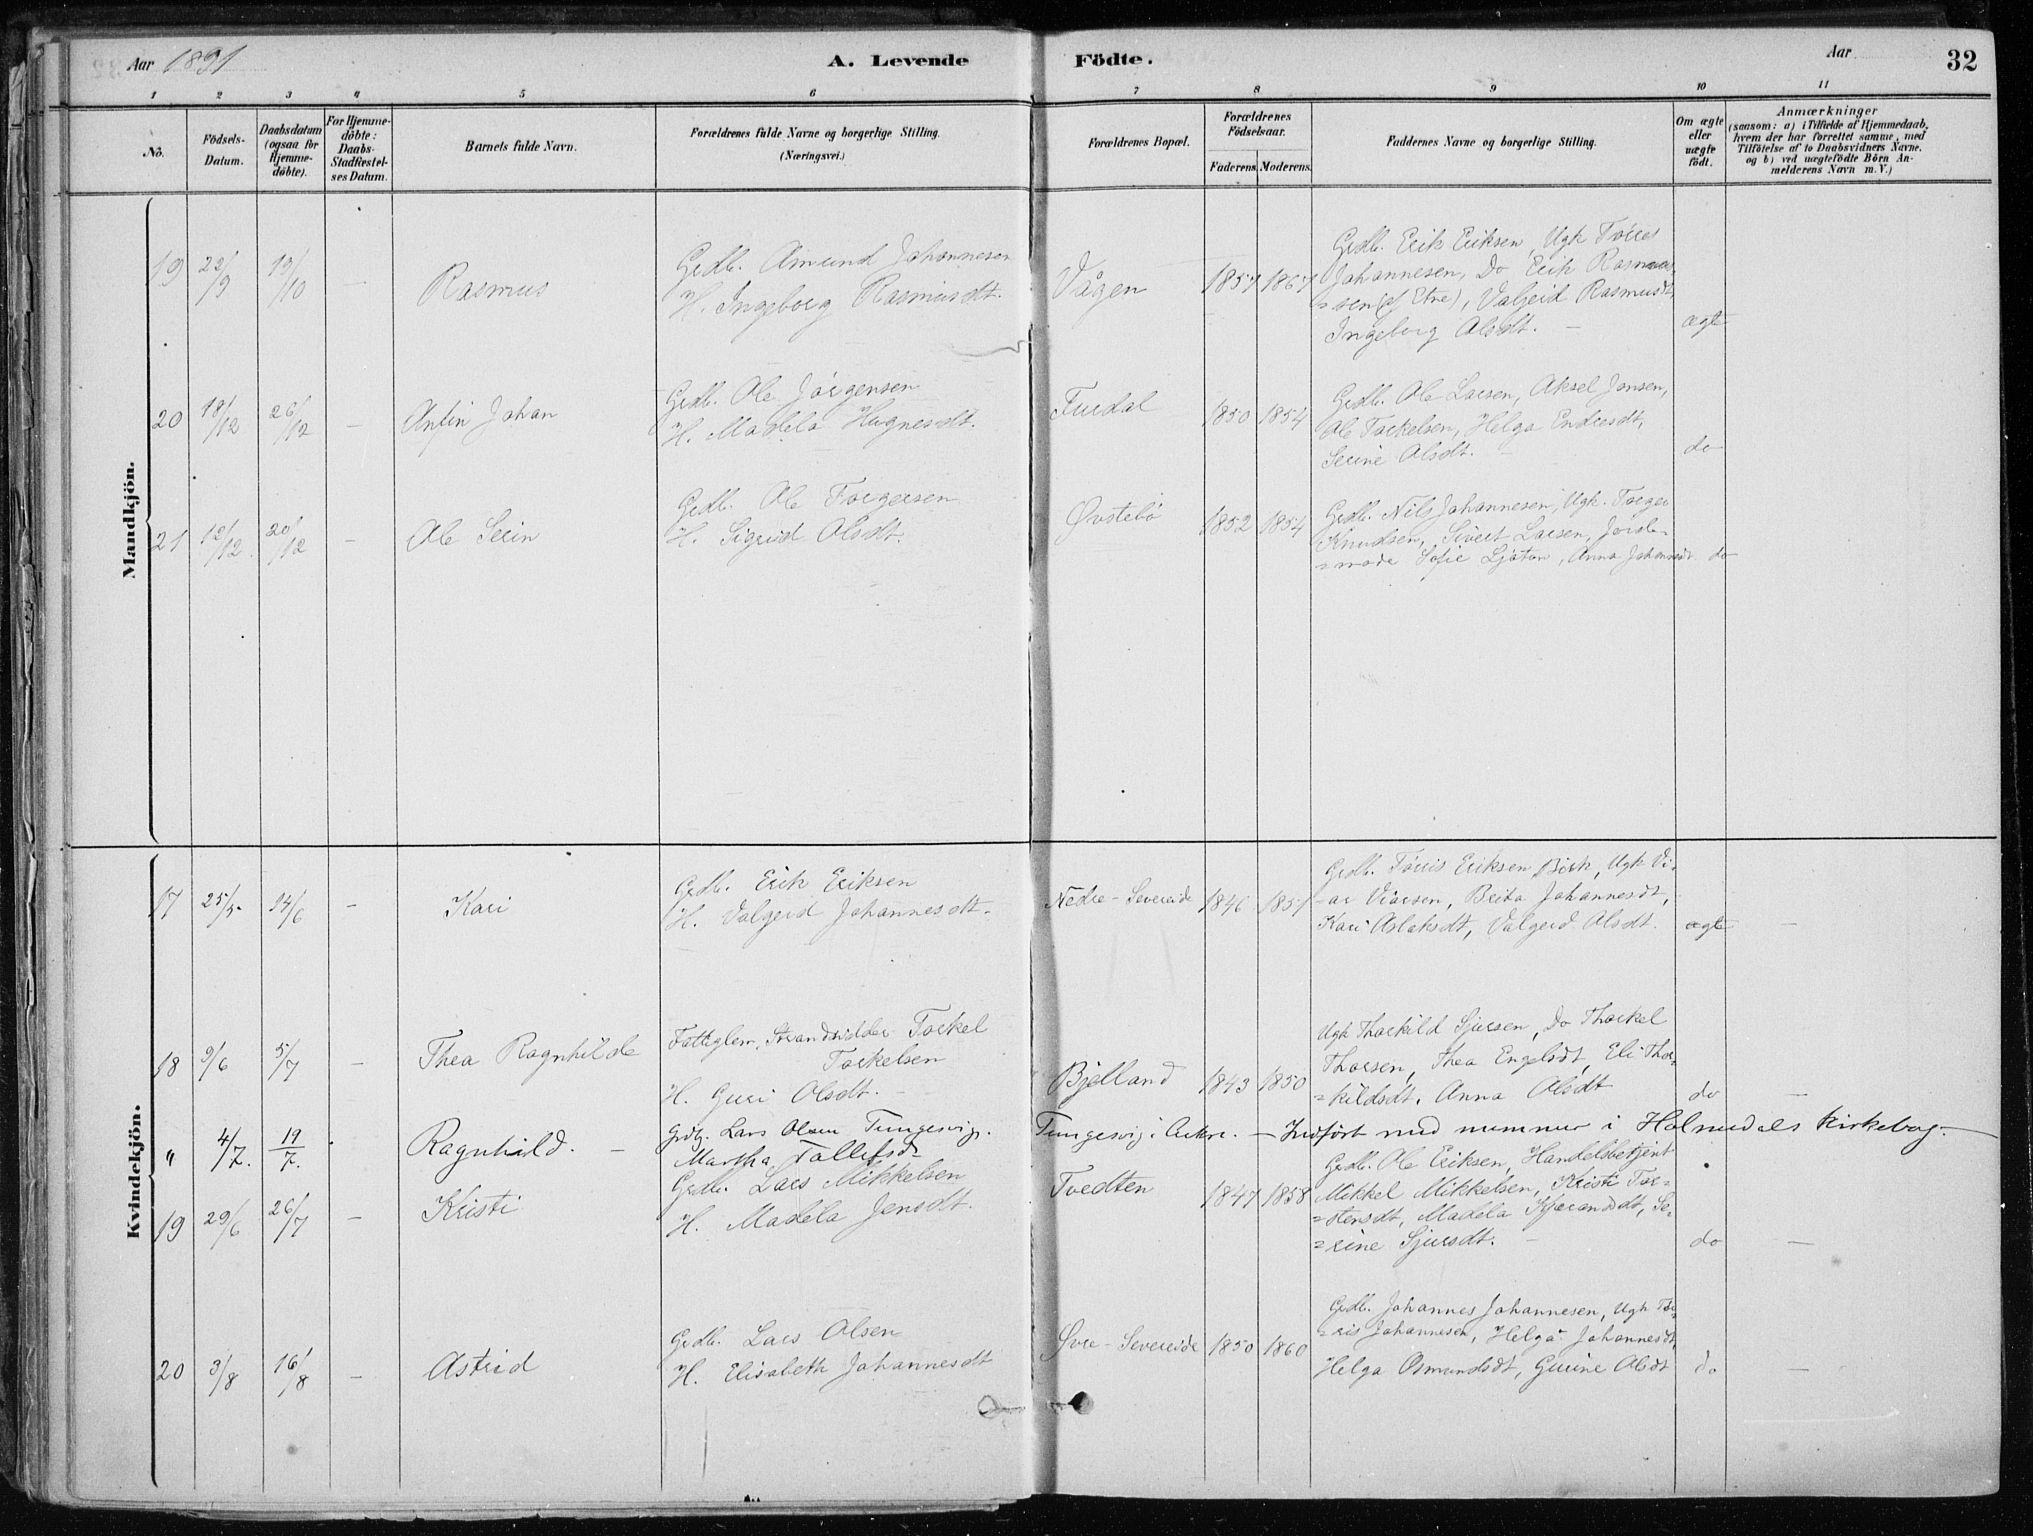 Aar 1891 A. Levende Födte. Aar 32
1 2 3 4 5 6 7 8 9 10 11
No. Födsels-Datum. Daabsdatum (ogsaa for Hjemmedöbte). For Hjemmedöbte: Daabs-Stadfæstelses Datum. Barnets fulde Navn. Forældrenes fulde Navne og borgerlige Stilling. (Næringsvei.) Forældrenes Bopæl. Forældrenes Födselsaar. Faderens. Moderens. Faddernes Navne og borgerlige Stilling. Om ægte eller uægte födt. Anmærkninger (saasom: a) i Tilfælde af Hjemmedaab, hvem der har forrettet samme, med Tilföielse af to Daabsvidners Navne, og b) ved uægtefödte Börn Anmelderens Navn m. V.)
Mandkjön.
19 22/9 19/10 — Rasmus
Grdb. Amund Johannesen
H. Ingeborg Rasmusdt.
Vågen 1857 1867
Grdb. Erik Eriksen, Ugk Tórres
Johannesen, Do Erik Rasmus-
=sen (af Etne), Valgerd Rasmusdt,
Ingeborg Olsdt. — ægte
20 18/12 26/12 — Antin Johan
Grdb. Ole Jörgensen
H. Madela Hagnesdt.
Fuedal 1850 1854
Grdb. Ole Larsen, Aksel Jansen,
Ole Torkelsen, Helga Endresdt,
Serine Olsdt. — do
21 12/12 20/12 — Ole Serin
Grdb. Ole Torgersen
H. Sigrid Olsdt.
Øvstebö 1852 1854
Grdb. Nils Johannesen, Ugk. Torger
Knudsen, Sivert Larsen, Jorde-
=mode Sofie Ljoton, Anna Johannesdt do
Kvindekjön.
17 25/5. 14/6 — Kari
Grdb. Erik Eriksen
H. Valgerd Johannesdt.
Nedre-Severeide 1846 1857
Grdb. Törris Eriksen Birk, Ugk Vi-
-ar Viarsen, Brita Johannesdt,
Kari Aslaksdt, Valgerd Olsdt. ægte —
18 9/6 5/7 — Thea Ragnhilde
Fattiglem, Strandsidder Torkel
Torkelsen
H. Guri Olsdt. —
Bjelland 1843 1850
Ugk Thorkild Sjursen, Do Thorkel
Thorsen, Thea Engelsdt, Eli Thor-
=kildsdt, Anna Olsdt do —
" 4/7. 19/7. Ragnhild. —
Grdb. Lars Olsen Tungesvig.
Martha Tollefsd.
Tungesvig i Ankre. — Indfört med nummer i Holmedals Kirkebog. —
19 29/6 26/7 — Kristi
Grdb. Lars Mikkelsen
H. Madela Jensdt.
Tvedten 1847 1858
Grdb. Ole Eriksen, Handelsbetjent
Mikkel Mikkelsen, Kristi Tor-
=stensdt, Madela Kjærandsdt, Se-
=rine Sjursdt. — do —
20 3/8 16/8 — Astrid
Grdb. Lars Olsen
H. Elisabeth Johannesdt
Øvre-Severeide 1850 1860
Grdb. Johannes Johannesen, Ugk Tör-
=ris Johannesen, Helga Johannesdt,
Helga Osmundsdt, Gurine Olsdt do —